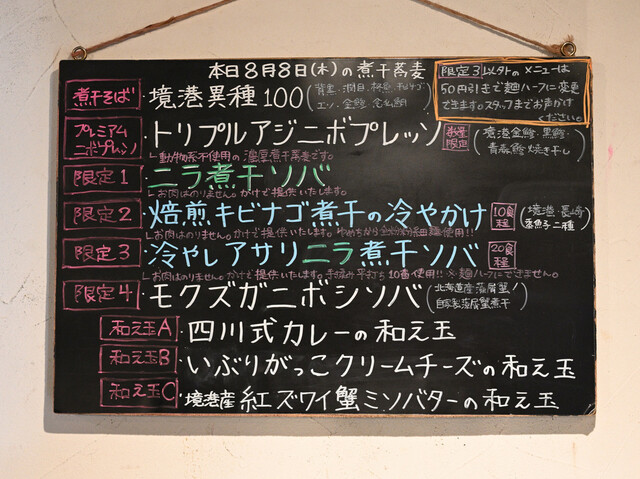 本日8月8日(木)の煮干蕎麦
限定3以外のメニューは
50円引きで麺ハーフに変更
できます。スタッフまでお声がけ
ください。
煮干そば・境港異種100
プレミアムニボプレッソ・トリプルアジニボプレッソ 数量限定
(境港金鯵・黒鯵・
青森鯵焼き干し)
└動物系不使用の濃厚煮干蕎麦です。
限定1・ニラ煮干ソバ
└お肉はのりません。かけで提供いたします。
限定2・焙煎キビナゴ煮干の冷やかけ 10食程
(境港・長崎
└お肉はのりません。かけで提供いたします。
限定3・冷やしアサリニラ煮干ソバ 20食程
└お肉はのりません。かけで提供いたします。手流め平打ち10番使用!!※麺ハーフにできません。
限定4・モクズガニボシソバ
(北海道産藻屑蟹!
自家製藻屑蟹煮干)
和え玉A・四川式カレーの和え玉
和え玉B・いぶりがっこクリームチーズの和え玉
和え玉C・境港産紅ズワイ蟹ミソバターの和え玉